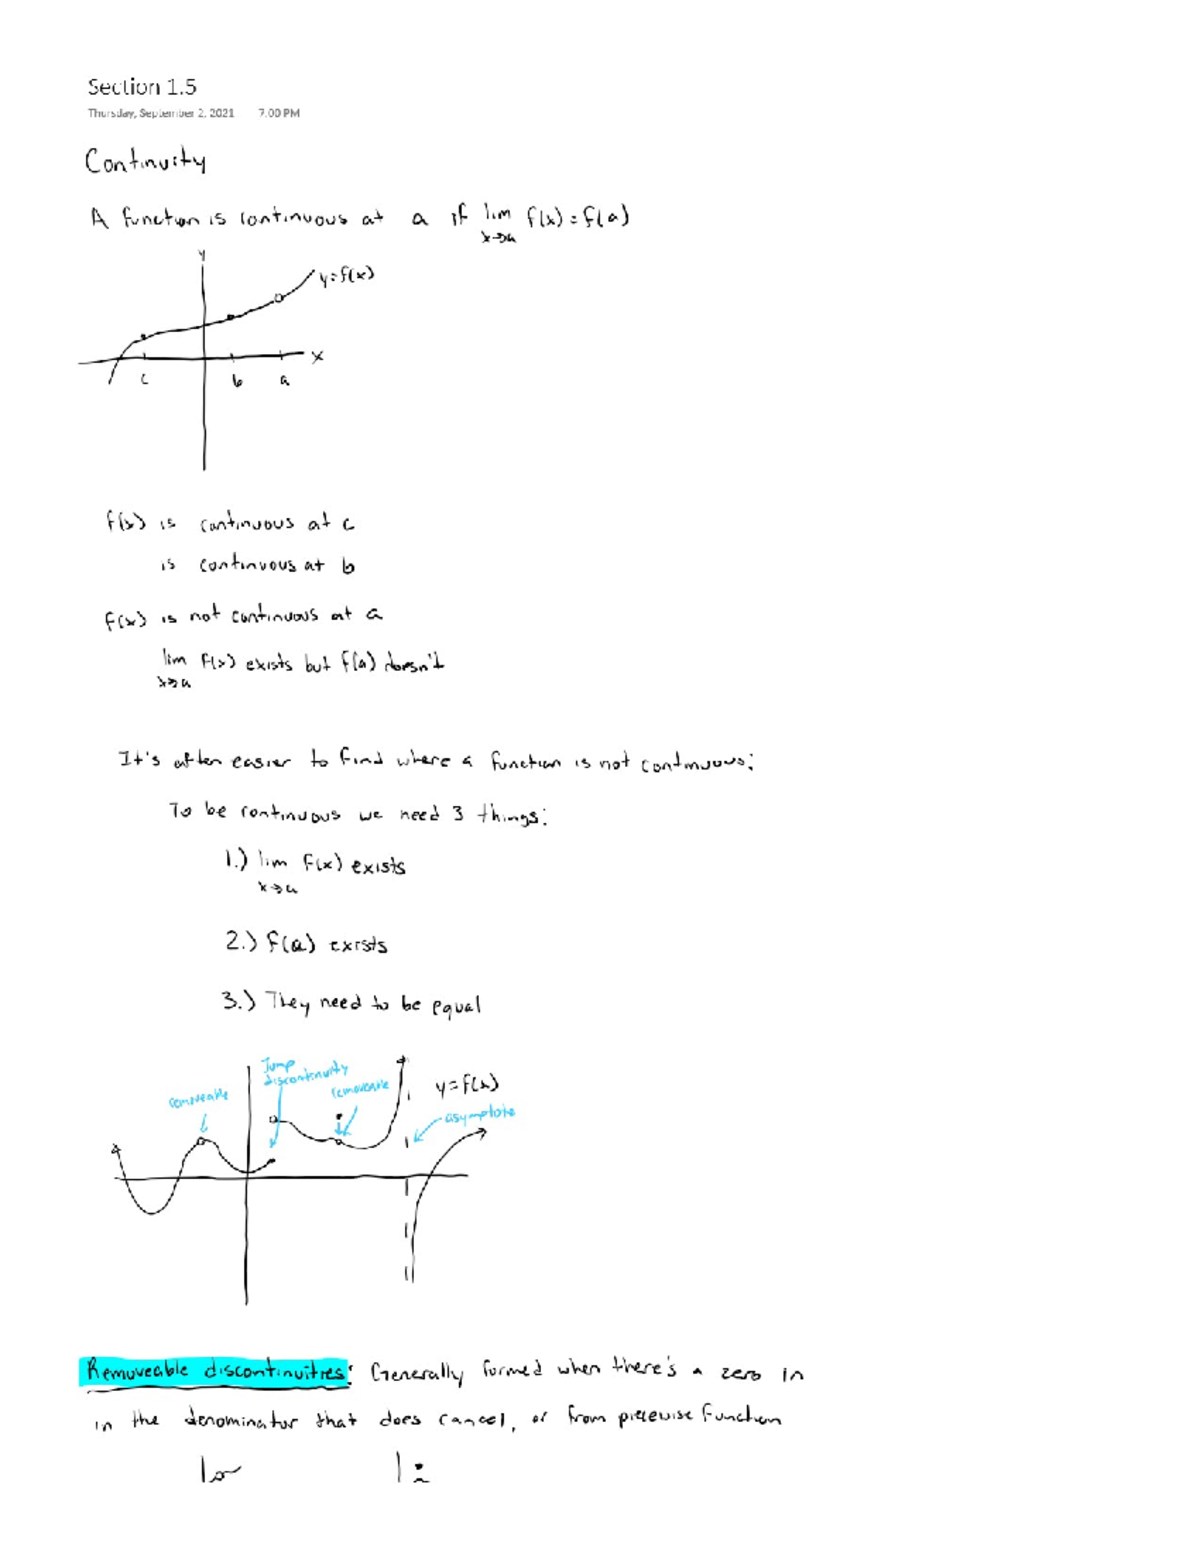 Section 1.5
Thursday, September 2, 2021 7:00 PM
Continuity
A function is continuous at a if lim f(x) = f(a)
x→a
y
y=f(x)
x
c b a
f(x) is continuous at c
is continuous at b
f(x) is not continuous at a
lim f(x) exists but f(a) doesn't
x→a
It's often easier to find where a function is not continuous:
To be continuous we need 3 things:
1.) lim f(x) exists
x→a
2.) f(a) exists
3.) They need to be equal
Jump
discontinuity
removeable
removeable
y=f(x)
asymptote
Removeable discontinuities: Generally formed when there's a zero in
in the denominator that does cancel, or from piecewise function